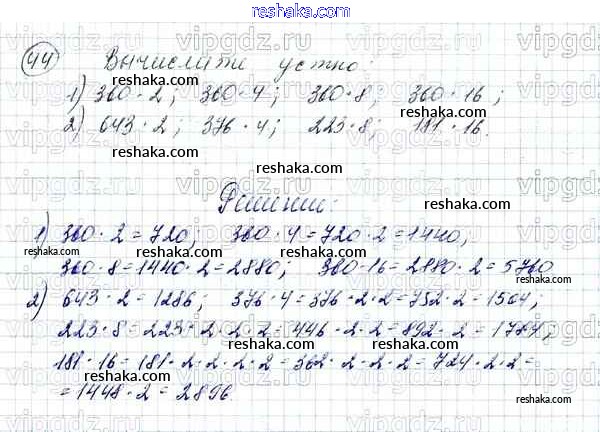 reshaka.com
44 Вычислите устно:
1) 360 · 2; 360 · 4; 360 · 8; 360 · 16;
2) 643 · 2; 376 · 4; 223 · 8; 181 · 16.
Решение:
1) 360 · 2 = 720; 360 · 4 = 720 · 2 = 1440;
360 · 8 = 1440 · 2 = 2880; 360 · 16 = 2880 · 2 = 5760
2) 643 · 2 = 1286; 376 · 4 = 376 · 2 · 2 = 752 · 2 = 1504;
223 · 8 = 223 · 2 · 2 · 2 = 446 · 2 · 2 = 892 · 2 = 1784;
181 · 16 = 181 · 2 · 2 · 2 · 2 = 362 · 2 · 2 · 2 = 724 · 2 · 2 =
= 1448 · 2 = 2896